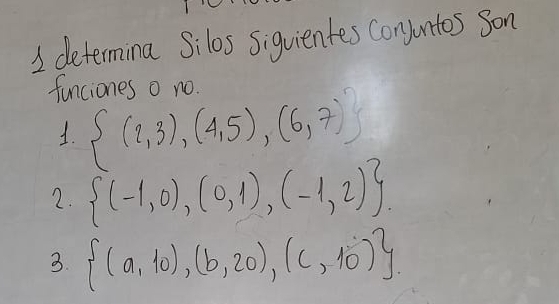 1 determina Si los siguientes conjuntos son
funciones o no.
1. { (2,3), (4,5), (6,7)}
2. {(-1,0), (0,1), (-1,2)}.
3. {(a, 10), (b, 20), (c, 10)}.